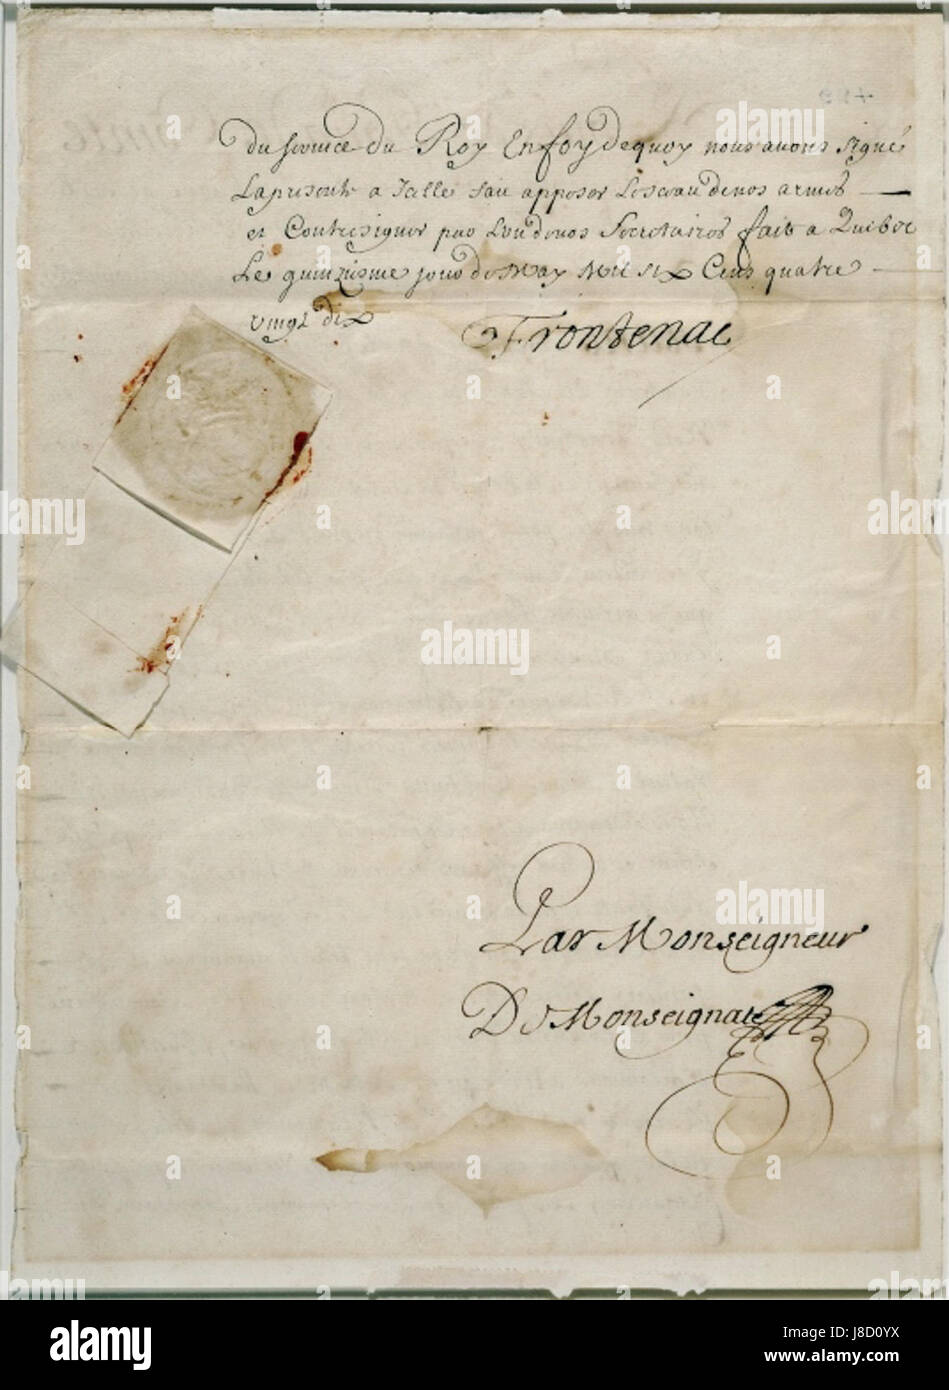 du service du Roy En foy de quoy nous avons signé
La presente a Icelle fait apposer Le sceau de nos armes
et Contresigner par L'un de nos Secretaires fait a Quebec
Le quinziesme jour de May Mil six Cens quatre
vingt dix Frontenac
Par Monseigneur
De Monseignat
alamy
Image ID: J8D0YX
www.alamy.com